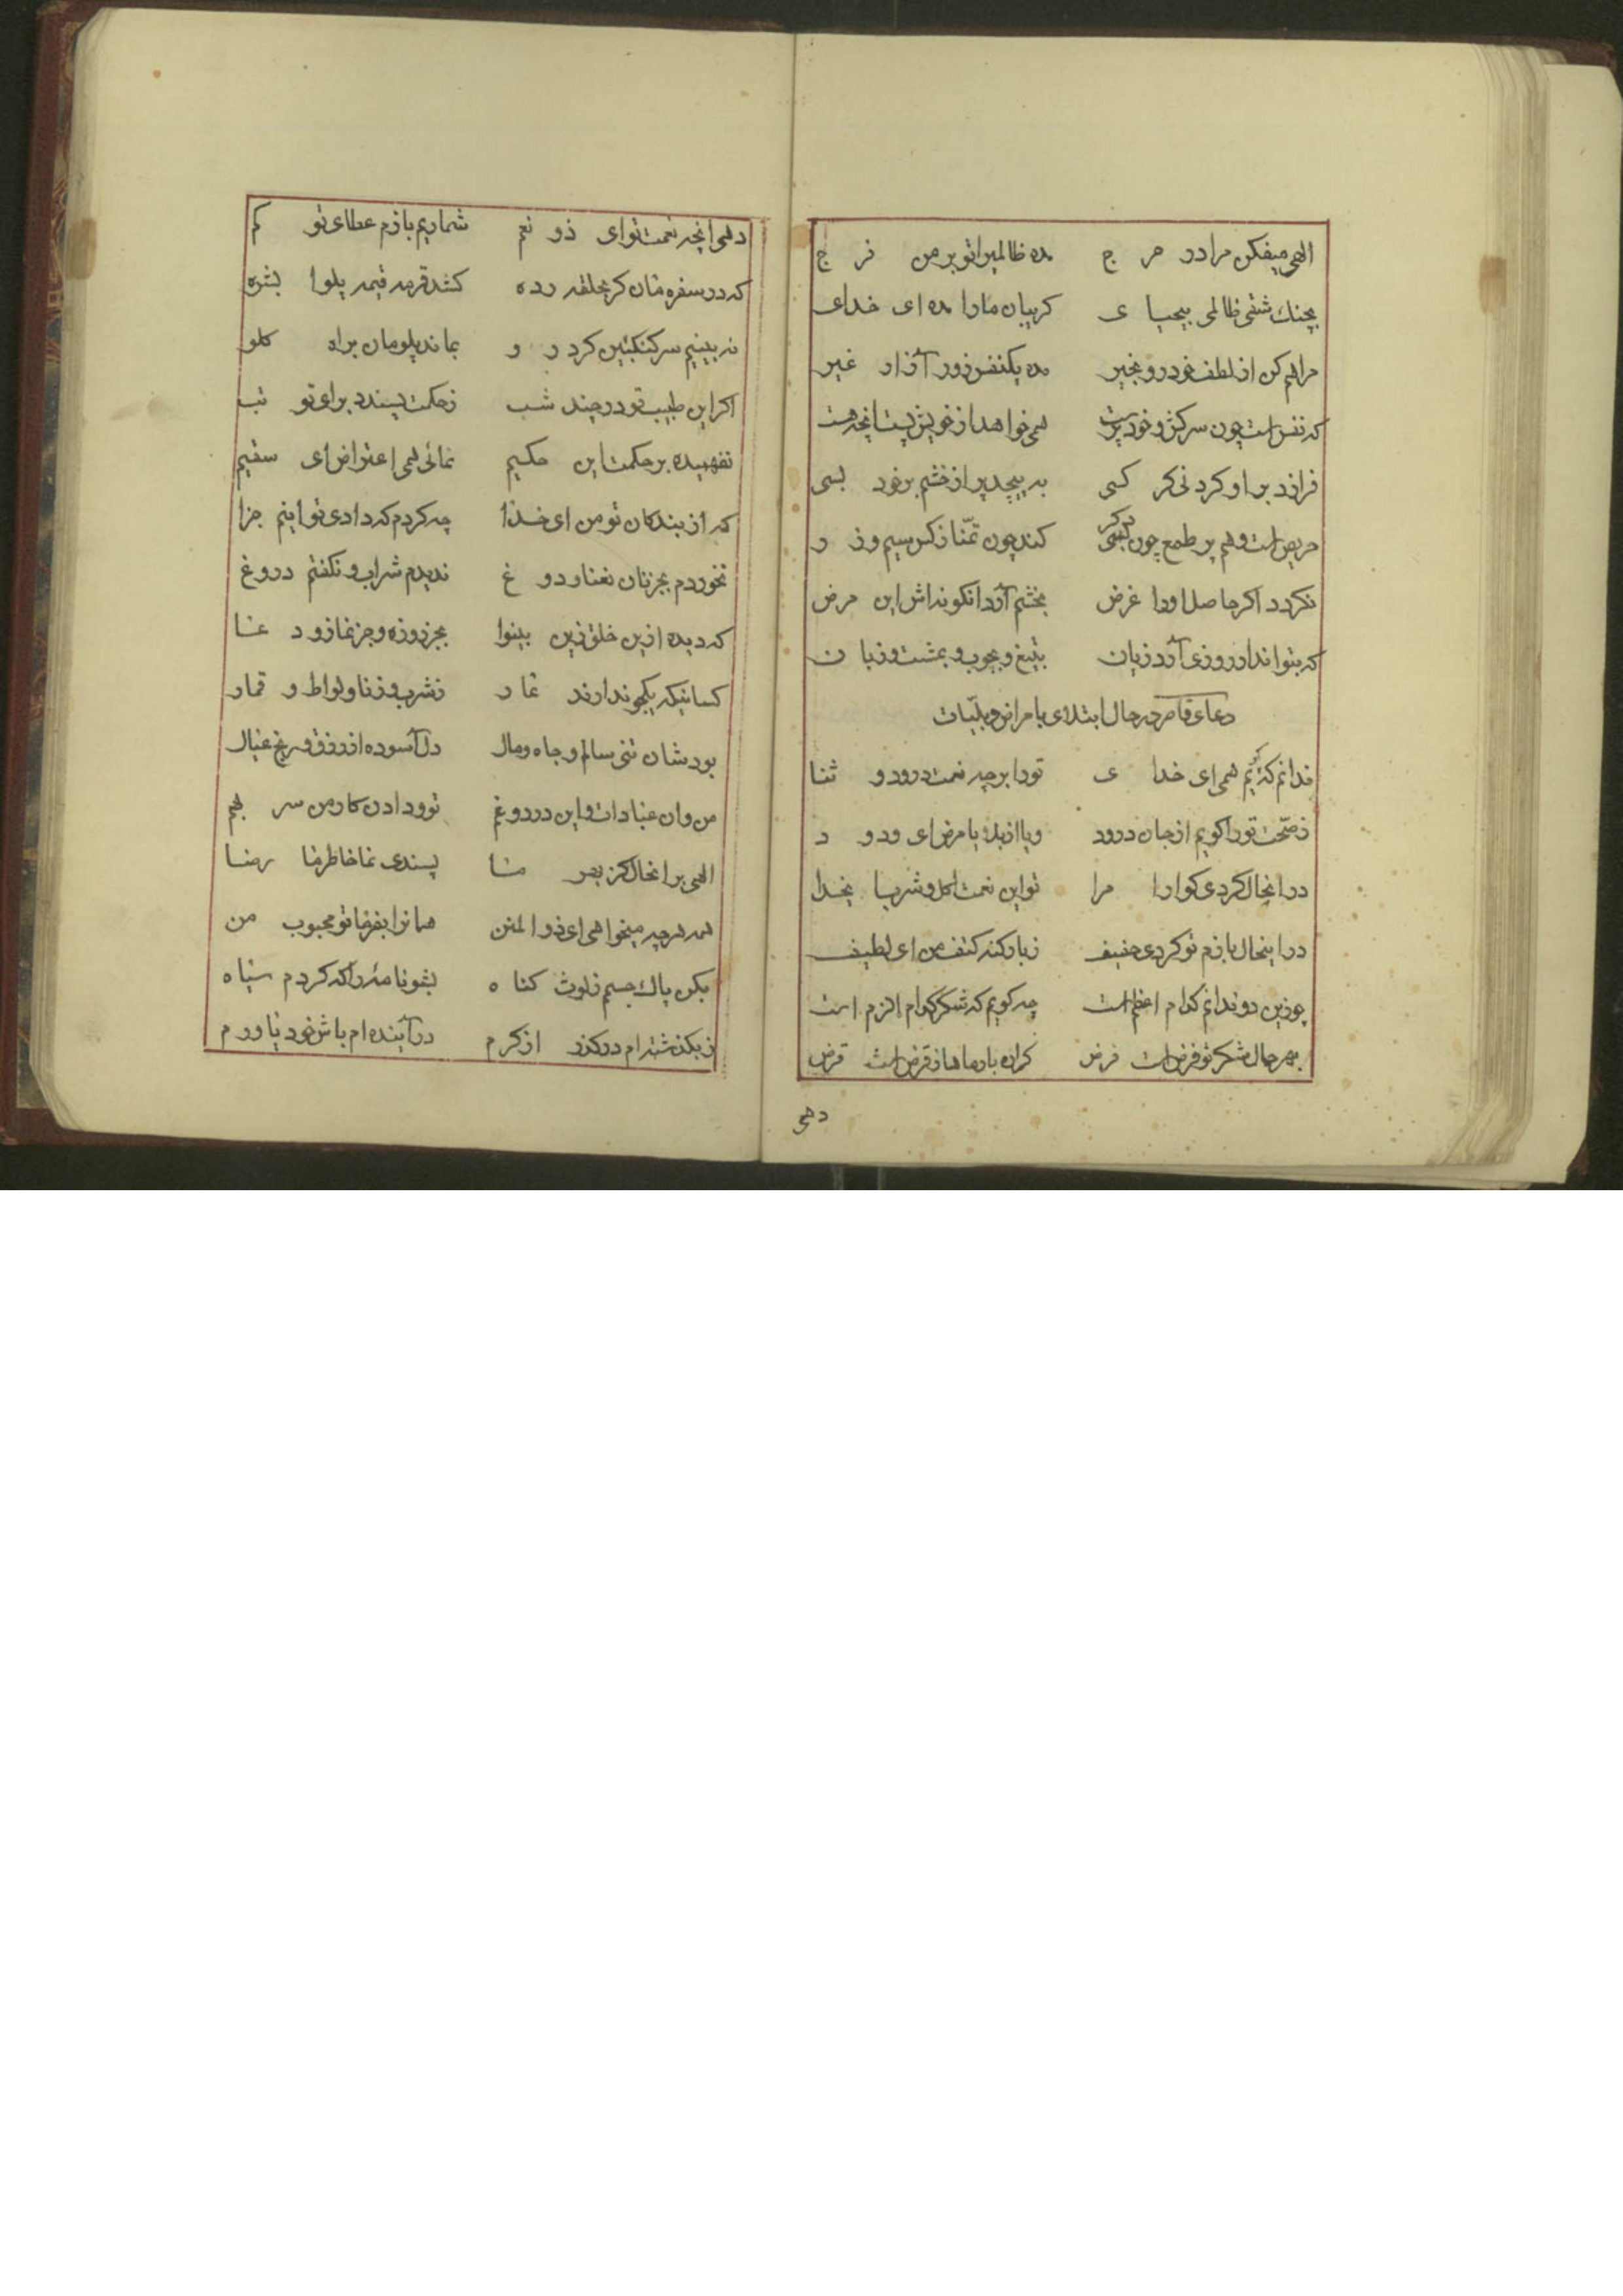 الهی میفکن مرا در حرج مده ظالمیرا تو بر من فرج
بچنك شقی ظالمی بیحیای کریبان مارا مده ای خدای
مراهم کن از لطف خود رو بخیر مده یکنفس زور آزار غیر
که نفس است چون سرکش و خود پرست همی خواهد از خویش پست انچه هست
فرازد بر او کردنی کر کسی به پیچد پر از خشم بر خود بسی
حریص است و هم پر طمع چون کسی کند چون تمنا ز کس سیم و زر
نکردد اکر حاصل اورا غرض بخشم آرد انکونه اش این مرض
که بتواند ار روزی آرد زیان بتیغ و بچوب و بمشت و زبان
دعای قاصر در حال ابتلای بامراض و بلیات
ندانم که کویم همی ای خدای تورا بر چه نعمت درود و ثنا
ز صحت تورا کویم از جان درود ویا از بلا یا مرض ای ودود
در انحال کردی کوارا مرا تو این نعمت اکل و شرب ای خدا
در اینحال بازم تو کردی خفیف ز بار کنه کتف من ای لطیف
چو زین دو ندانم کدام اعظم است چه کویم که شکر کدام الزم است
بهر حال شکر تو فرض است فرض کران بارها ها ز قرض است قرض
دهی
دهی انچه نعمت تو ای ذو نعم شماریم بازم عطای تو کم
که در سفره مان کر بحلقه رده کشد قرمه قیمه پلوا بشره
نه بینیم سرکنکبین کرد رو بماند پلومان براه کلو
اکر این طبیب تو در چند شب ز حکمت پسندد برای تو تب
نفهمیده بر حکمت این حکیم نمائی همی اعتراض ای سقیم
که از بندکان تو من ای خدا چه کردم که دادی تو اینم جزا
نخوردم بجز نان نعنا و دوغ ندیدم شراب و نکفتم دروغ
که دیده ازین خلق زین بینوا بجز روزه و جز نماز و دعا
کسانیکه یکجو ندارند عار ز شرب و زنا و لواط و قمار
بود شان تنی سالم و جاه و مال دل آسوده از رزق و رنج عیال
من وان عبادات و این درد و غم تو و دادن کار من سر بهم
الهی بر انحال کز بهر ما پسندی نما خاطر ما رضا
همه هر چه میخواهی ای ذو المنن همانرا بفرما تو محبوب من
بکن پاك جسم ز لوث کناه بشو نامه را که کردم سیاه
ز بکذشته ام در کذر از کرم در آینده ام باش خود یاورم